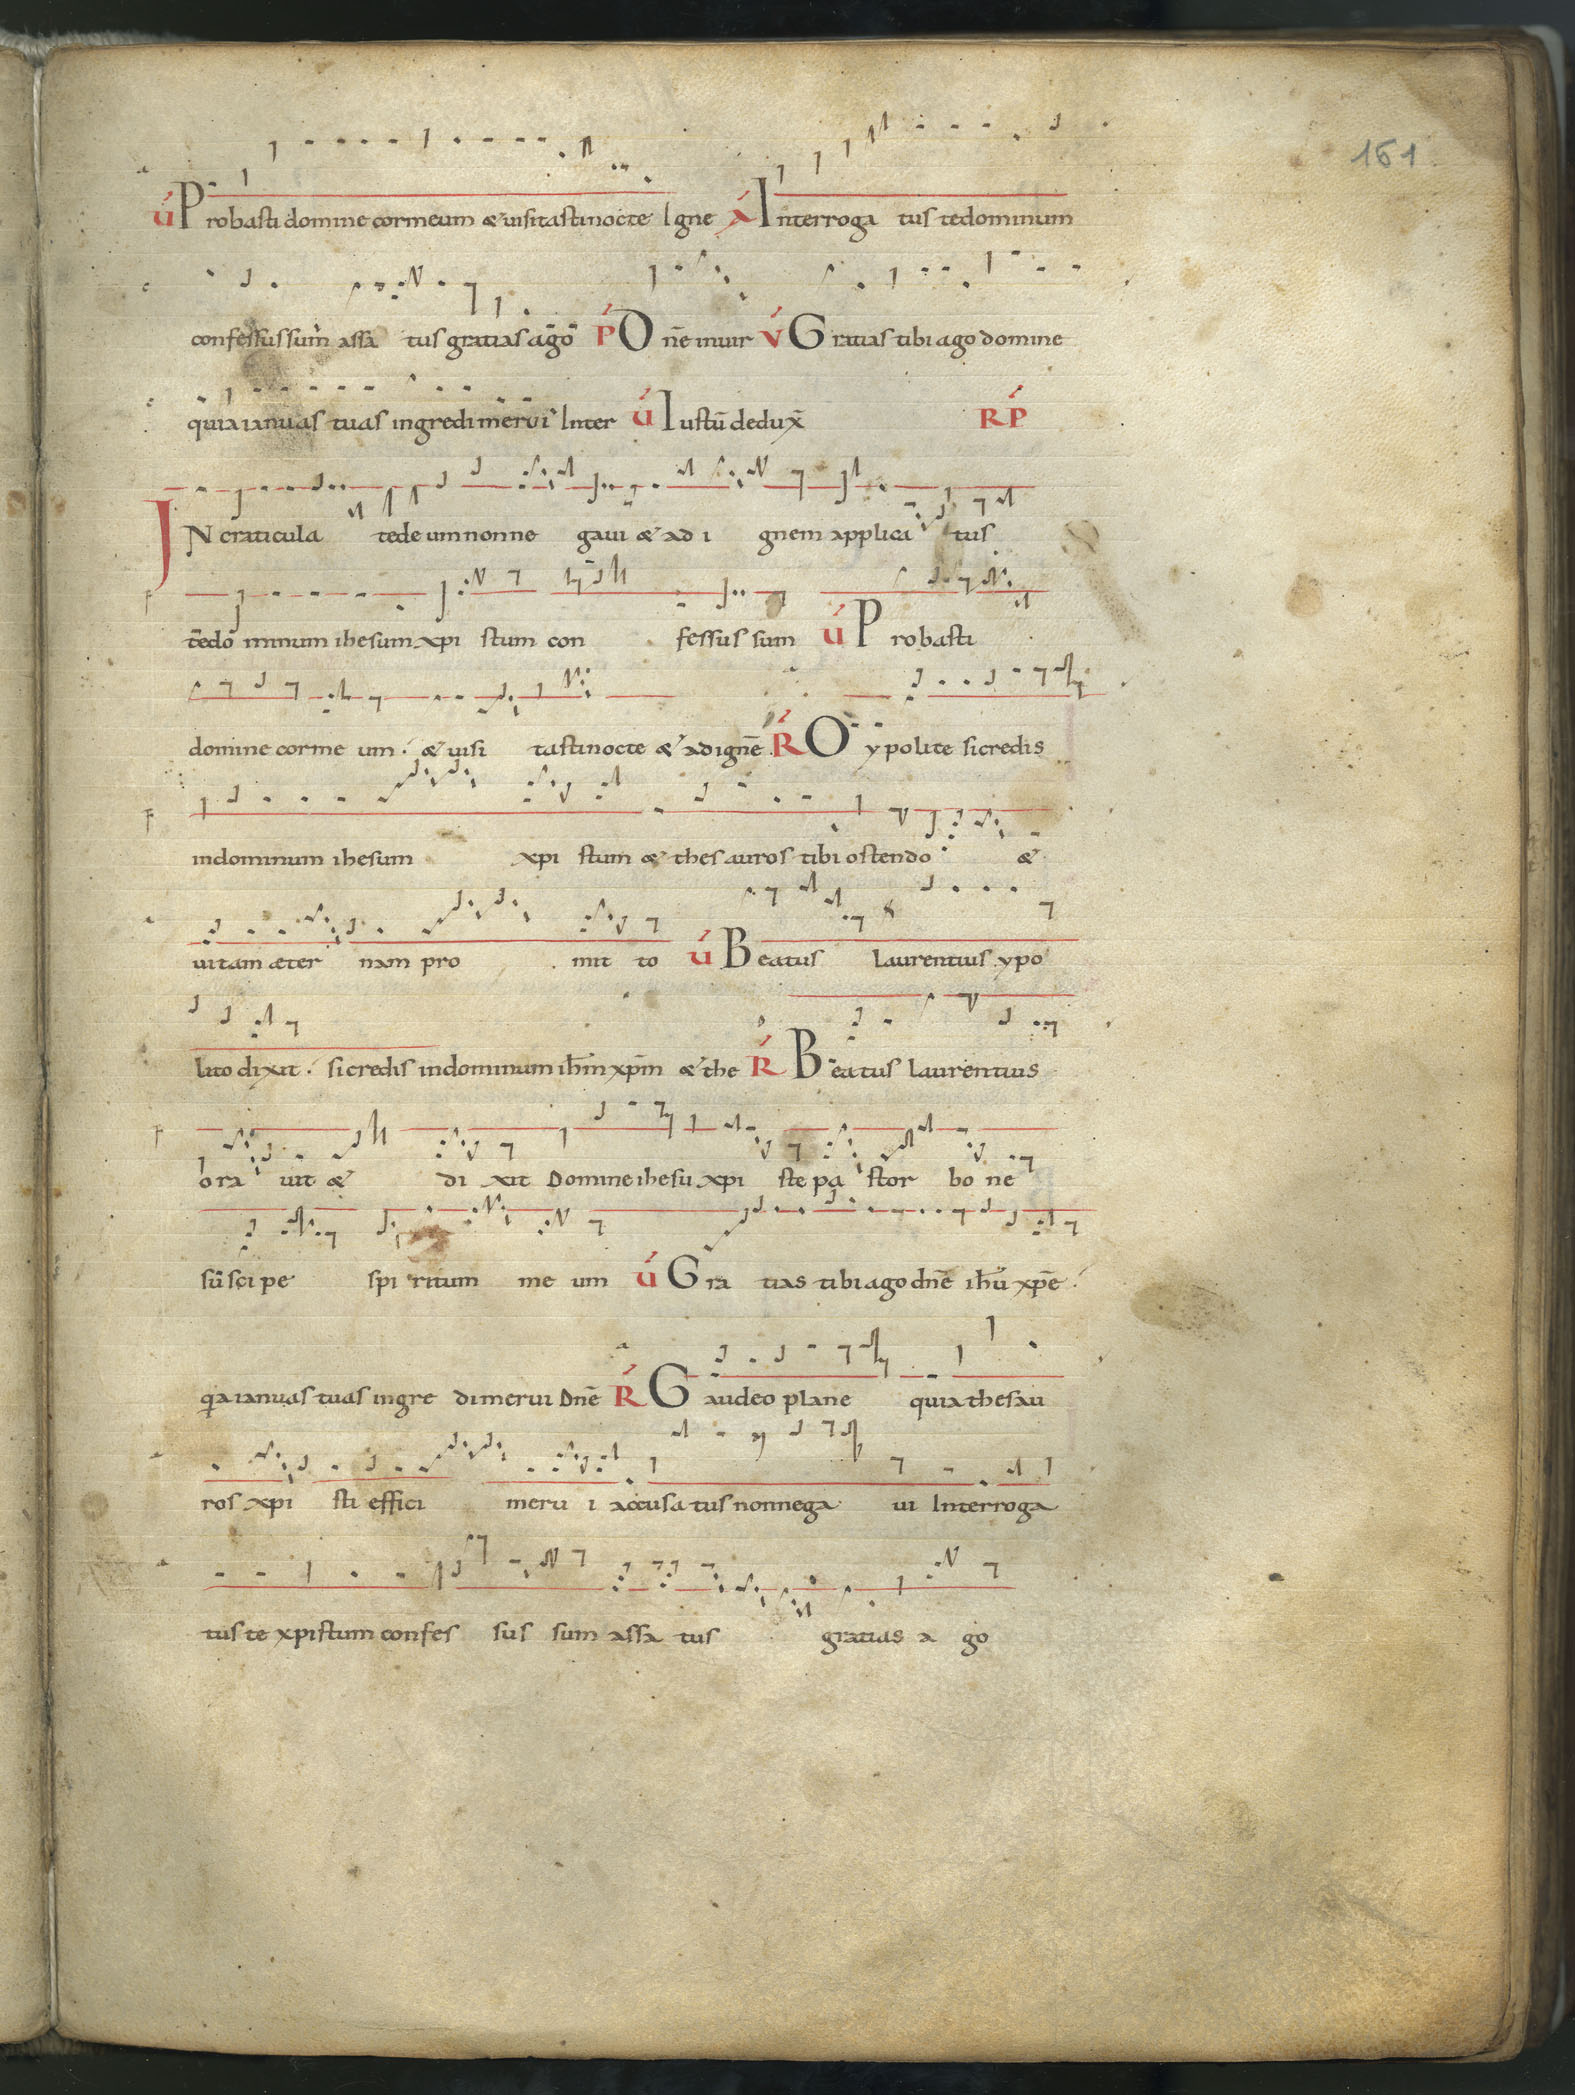 161
V́ Probasti domine cor meum & uisitasti nocte Igne Á Interroga tus te dominum
confessus sum assa tus gratias ago Ṕ Onē in uir V́ Gratias tibi ago domine
quia ianuas tuas ingredi merui Inter V́ Iustū dedux̄ RṔ
IN craticula te deum non ne gaui & ad i gnem applica tus
te do minum ihesum xpi stum con fessus sum V́ Probasti
domine cor me um & uisi tasti nocte & ad ignē Ŕ O ypolite si credis
in dominum ihesum xpi stum & thesauros tibi ostendo &
uitam æter nam pro mit to V́ Beatus Laurentius ypo
lito dixit si credis in dominum ihm̄ xp̄m & the Ŕ Beatus Laurentius
ora uit & di xit Domine ihesu xpi ste pa stor bo ne
sus̄ci pe spi ritum me um V́ Gra tias tibi ago dn̄e ihū xp̄e
qa ianuas tuas ingre di merui Dn̄e Ŕ Gaudeo plane quia thesau
ros xpi sti effici meru i accusa tus non nega ui Interroga
tus te xpistum confes sus sum assa tus gratias a go